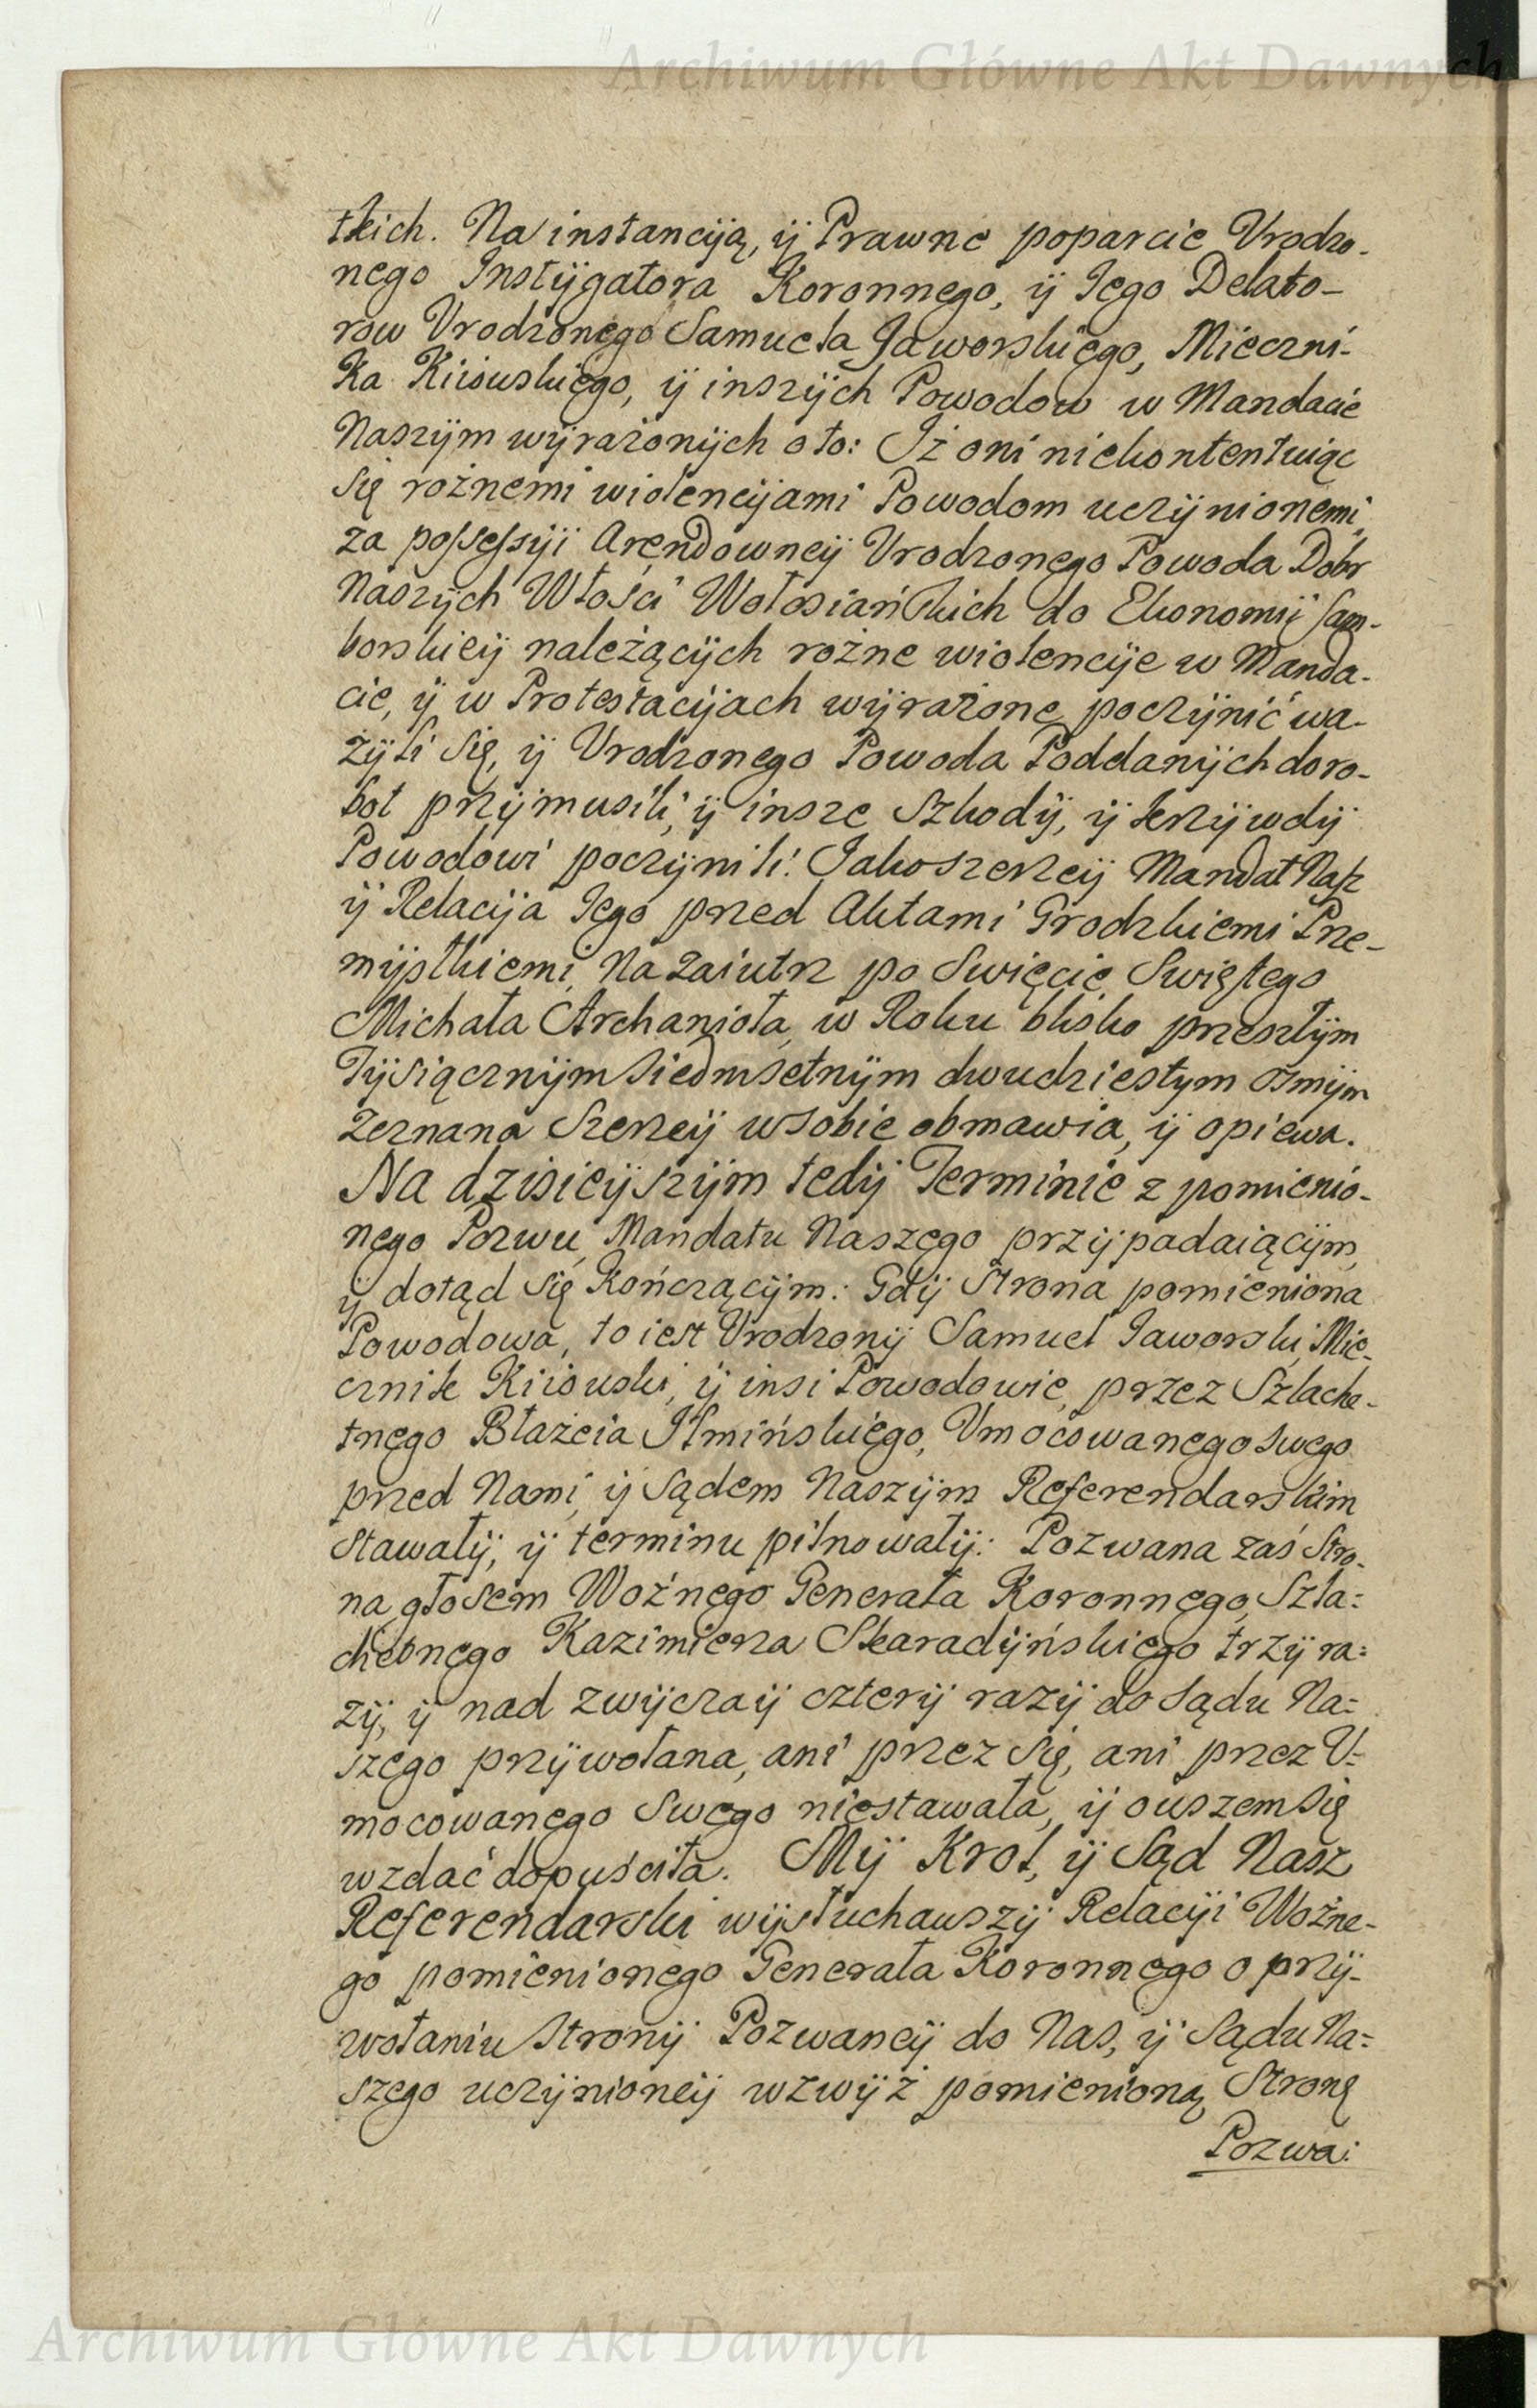 Archiwum Główne Akt Dawnych
tkich. Na instancÿią, ÿ Prawne poparcie Vrodzo-
nego Instÿgatora Koronnego, ÿ Jego Delato-
row Vrodzonego Samuela Jaworskiego, Mieczni-
ka Kiiouskiego, ÿ inszÿch Powodow w Mandacie
Naszÿm wÿrażonÿch o to: Iż oni niekontentuiąc
się rożnemi wiolencÿjami Powodom uczÿnionemi,
za possessÿi Arendowneÿ Vrodzonego Powoda Dobr
Naszÿch Włości Wołosiańskich do Ekonomÿi Sam-
borskieÿ należącÿch rożne wiolencÿe w Manda-
cie, ÿ w Protestacÿjach wÿrażone poczÿnić wa-
żÿli się, ÿ Vrodzonego Powoda Poddanÿch do ro-
bot przÿmusili, ÿ insze Szkodÿ, ÿ krzÿwdÿ
Powodowi poczÿnili. Jako szerzeÿ Mandat Nasz
ÿ Relacÿja Jego przed Aktami Grodzkiemi Prze-
mÿslkiemi, Na zaiutrz po Swięcie Swiętego
Michała Archanioła, w Roku blisko przeszłÿm
Tÿsiącznÿm siedmsetnÿm dwudziestym osmÿm
Zeznana Szerzeÿ w sobie obmawia, ÿ opiewa.
Na dzisieÿszÿm tedÿ Terminie z pomienio-
nego Pozwu, Mandatu Naszego przÿpadaiącÿm,
ÿ dotąd się Kończącÿm: Gdÿ Strona pomieniona
Powodowa, to iest Vrodzonÿ Samuel Jaworski Mie-
cznik Kiiouski, ÿ insi Powodowie, przez Szlache-
tnego Błażeia Ilmińskiego, Vmocowanego swego
przed Nami, ÿ Sądem Naszÿm Referendarskim
stawałÿ, ÿ terminu pilnowałÿ: Pozwana zaś Stro-
na głosem Woźnego Generała Koronnego, Szla=
chetnego Kazimierza Skaradÿńskiego trzÿ ra=
zÿ, ÿ nad zwÿczaÿ czterÿ razÿ do Sądu Na=
szego przÿwołana, ani przez się, ani przez V=
mocowanego swego niestawała, ÿ ouszem się
wzdać dopuściła. Mÿ Krol, ÿ Sąd Nasz
Referendarski wÿsłuchauszÿ Relacÿi Woźne-
go pomienionego Generała Koronnego o przÿ-
wołaniu Stronÿ Pozwaneÿ do Nas, ÿ Sądu Na=
szego uczÿnioneÿ wzwÿż pomienioną Stronę
Pozwa:
Archiwum Główne Akt Dawnych